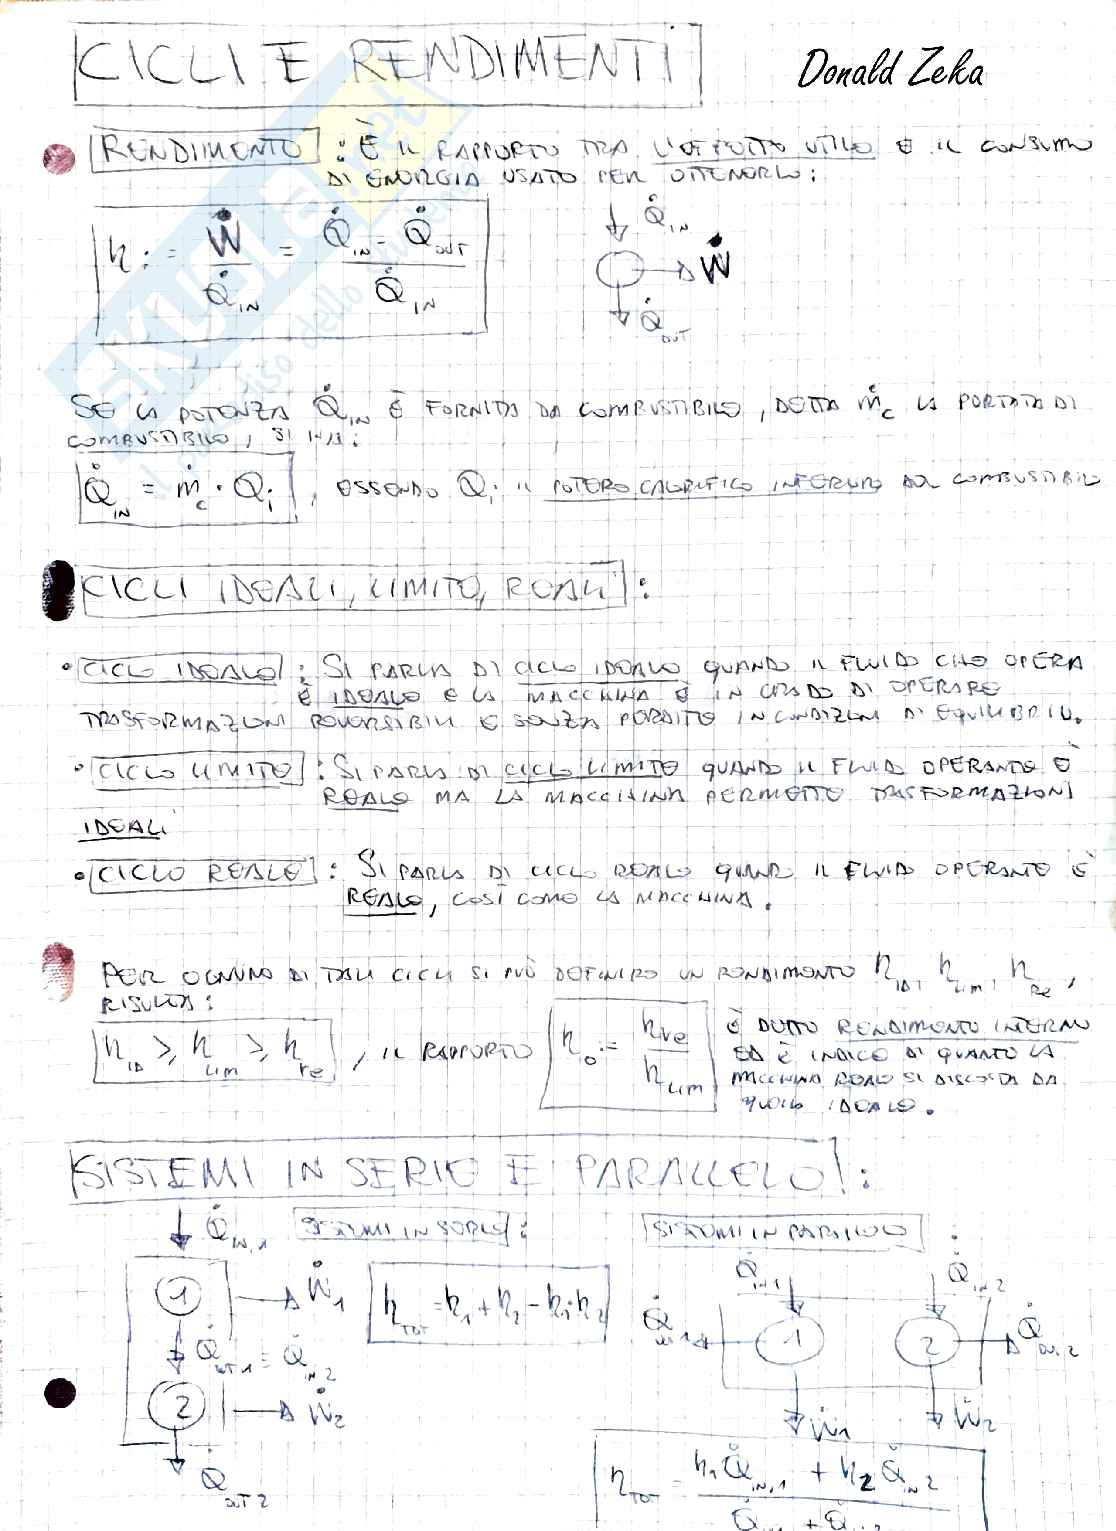 CICLI E RENDIMENTI
Donald Zeka
RENDIMENTO : È IL RAPPORTO TRA L'EFFETTO UTILE E IL CONSUMO
DI ENERGIA USATO PER OTTENERLO:
η := Ẇ / Q̇IN = (Q̇IN - Q̇OUT) / Q̇IN
Q̇IN
Ẇ
Q̇OUT
SE LA POTENZA Q̇IN È FORNITA DA COMBUSTIBILE, DETTA ṁc LA PORTATA DI
COMBUSTIBILE, SI HA:
Q̇IN = ṁc · Qi , ESSENDO Qi IL POTERE CALORIFICO INFERIORE DEL COMBUSTIBILE
CICLI IDEALI, LIMITE, REALI :
• CICLO IDEALE : SI PARLA DI CICLO IDEALE QUANDO IL FLUIDO CHE OPERA
È IDEALE E LA MACCHINA È IN GRADO DI OPERARE
TRASFORMAZIONI REVERSIBILI E SENZA PERDITE IN CONDIZIONI DI EQUILIBRIO.
• CICLO LIMITE : SI PARLA DI CICLO LIMITE QUANDO IL FLUIDO OPERANTE È
REALE MA LA MACCHINA PERMETTE TRASFORMAZIONI
IDEALI
• CICLO REALE : SI PARLA DI CICLO REALE QUANDO IL FLUIDO OPERANTE È
REALE, COSÌ COME LA MACCHINA.
PER OGNUNO DI TALI CICLI SI PUÒ DEFINIRE UN RENDIMENTO ηID, ηLIM, ηRE,
RISULTA:
ηID ≥ ηLIM ≥ ηre , IL RAPPORTO η0 := ηre / ηLIM È DETTO RENDIMENTO INTERNO
ED È INDICE DI QUANTO LA
MACCHINA REALE SI DISCOSTA DA
QUELLA IDEALE.
SISTEMI IN SERIE E PARALLELO :
Q̇IN,1
SISTEMI IN SERIE :
SISTEMI IN PARALLELO :
1
Ẇ1
ηTOT = η1 + η2 - η1·η2
Q̇OUT,1 = Q̇IN,2
2
Ẇ2
Q̇OUT 2
Q̇IN,1
Q̇IN,2
Q̇OUT,1
1
2
Q̇OUT,2
Ẇ1
Ẇ2
ηTOT = (η1 Q̇IN,1 + η2 Q̇IN,2) /
SKUOLA.net